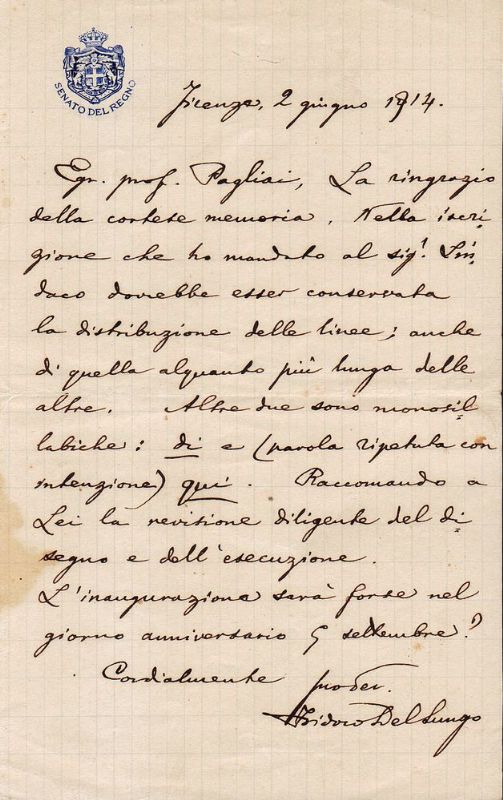 SENATO DEL REGNO
Firenze, 2 giugno 1914.
Egr. prof. Pagliai, La ringrazio
della cortese memoria. Nella iscri
zione che ho mandato al sig.r Sin
daco dovrebbe esser conservata
la distribuzione delle linee; anche
di quella alquanto più lunga delle
altre. Altre due sono monosil
labiche: di e (parola ripetuta con
intenzione) qui. Raccomando a
Lei la revisione diligente del di
segno e dell'esecuzione.
L'inaugurazione sarà forse nel
giorno anniversario 5 settembre?
Cordialmente
Isidoro Del Lungo